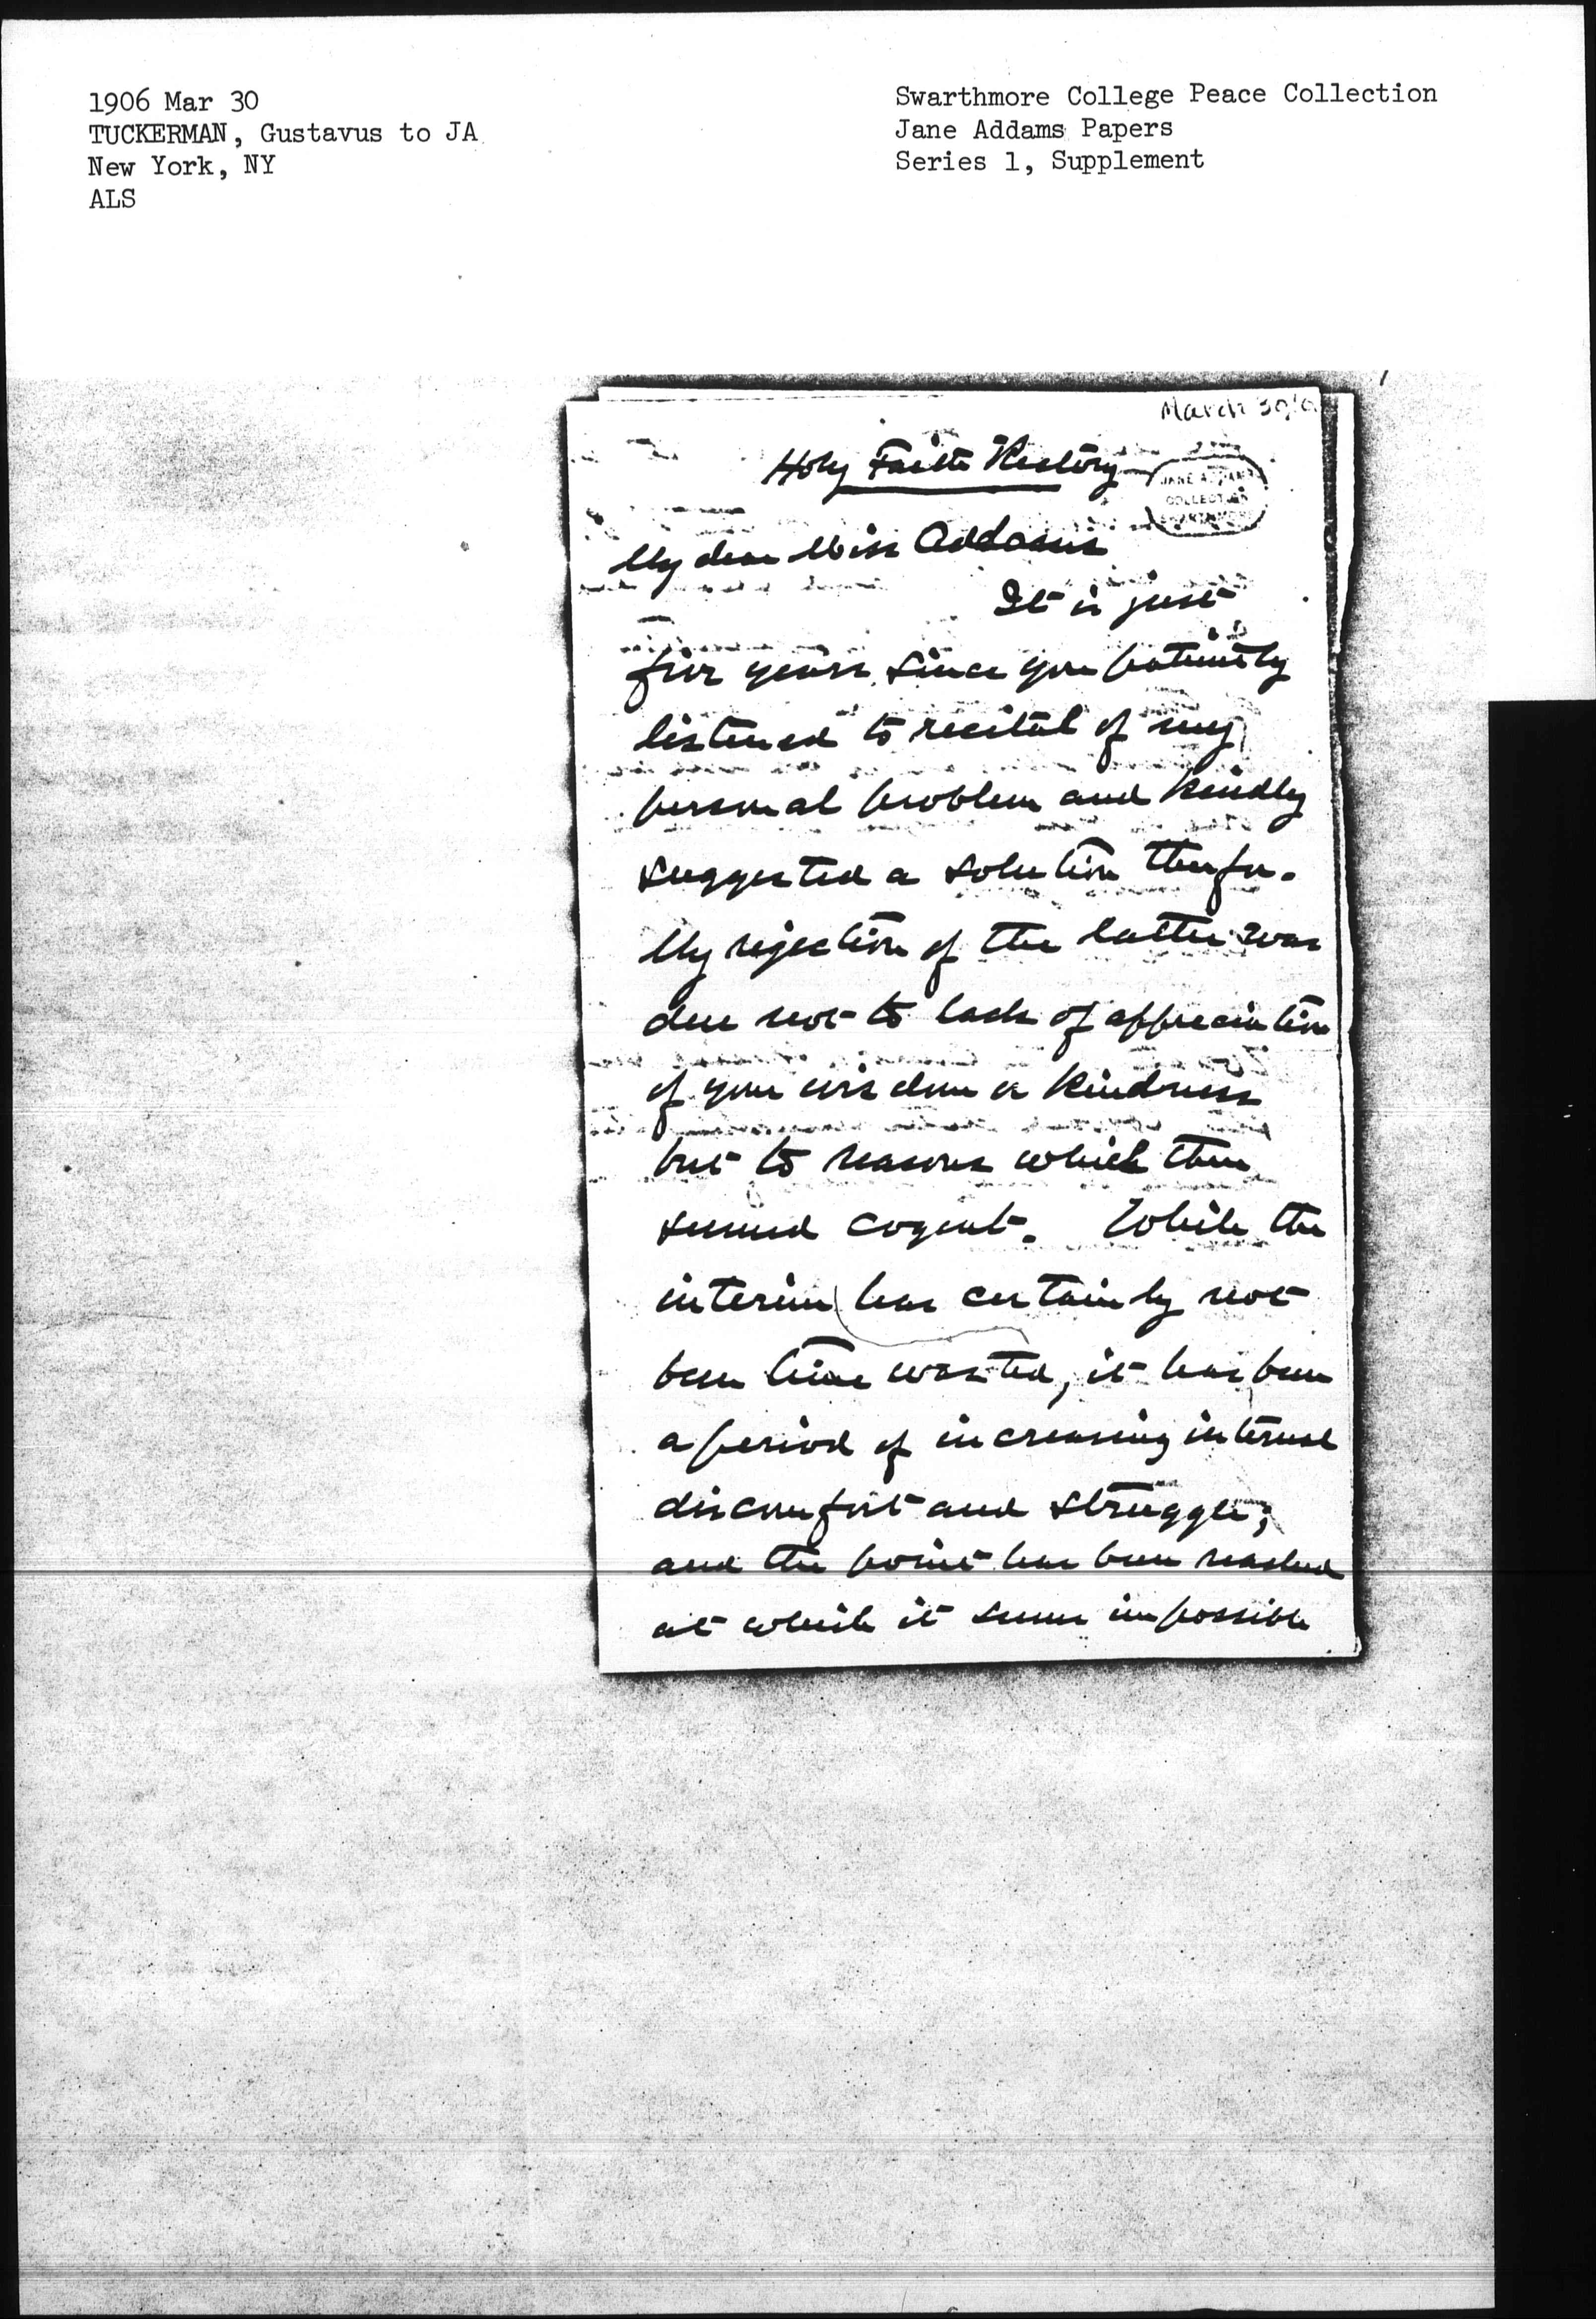 1906 Mar 30
TUCKERMAN, Gustavus to JA
New York, NY
ALS
Swarthmore College Peace Collection
Jane Addams Papers
Series 1, Supplement
March 30
Holy Faith Rectory
JANE ADDAMS
COLLECTION
SWARTHMORE
My dear Miss Addams
It is just
five years since you patiently
listened to recital of my
personal problem and kindly
suggested a solution therefor.
My rejection of the latter was
due not to lack of appreciation
of your wisdom or kindness
but to reasons which then
seemed cogent. While the
interim has certainly not
been time wasted, it has been
a period of increasing internal
discomfort and struggle;
and the point has been reached
at which it seems impossible